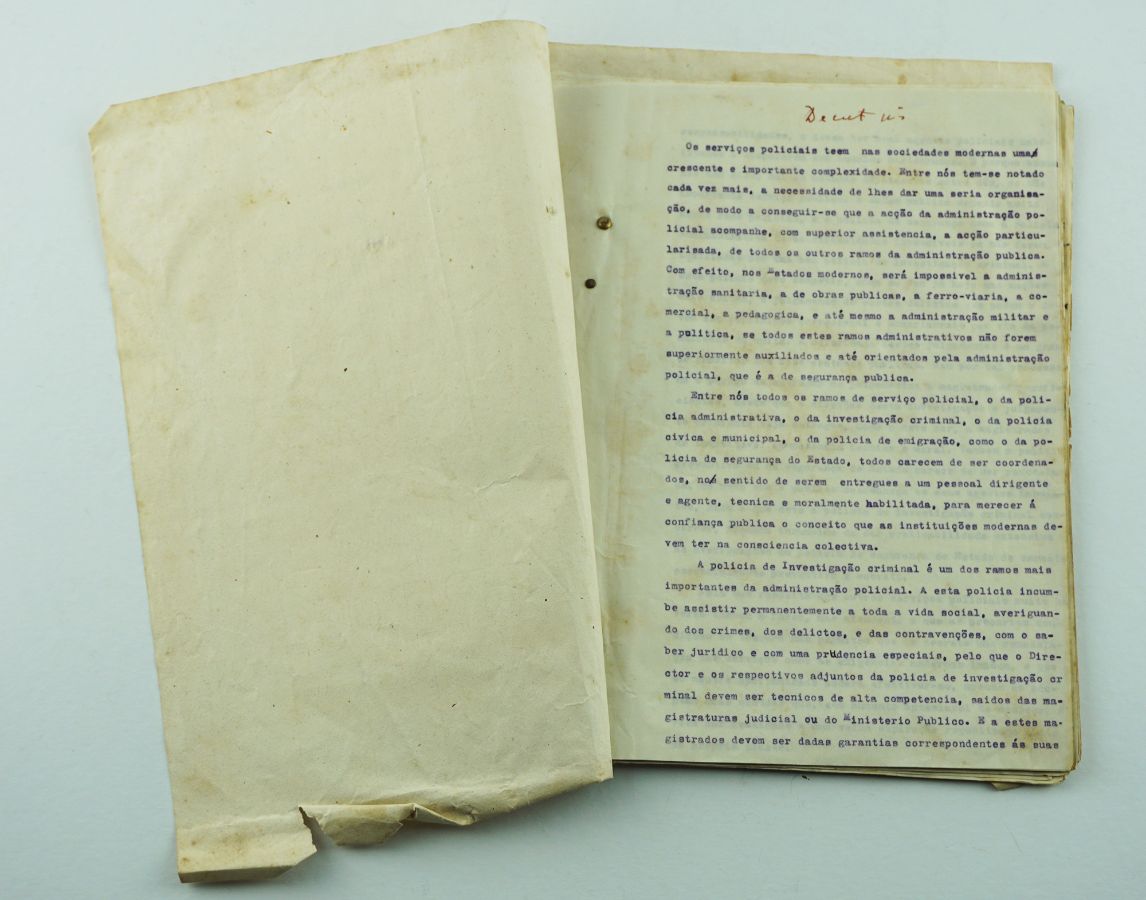 Decret nº
Os serviços policiais teem nas sociedades modernas uma
crescente e importante complexidade. Entre nós tem-se notado
cada vez mais, a necessidade de lhes dar uma seria organisa-
ção, de modo a conseguir-se que a acção da administração po-
licial acompanhe, com superior assistencia, a acção particu-
larisada, de todos os outros ramos da administração publica.
Com efeito, nos Estados modernos, será impossivel a adminis-
tração sanitaria, a de obras publicas, a ferro-viaria, a co-
mercial, a pedagogica, e até mesmo a administração militar e
a politica, se todos estes ramos administrativos não forem
superiormente auxiliados e até orientados pela administração
policial, que é a de segurança publica.
Entre nós todos os ramos de serviço policial, o da poli-
cia administrativa, o da investigação criminal, o da policia
civica e municipal, o da policia de emigração, como o da po-
licia de segurança do Estado, todos carecem de ser coordena-
dos, no sentido de serem entregues a um pessoal dirigente
e agente, tecnica e moralmente habilitada, para merecer á
confiança publica o conceito que as instituições modernas de-
vem ter na consciencia colectiva.
A policia de Investigação criminal é um dos ramos mais
importantes da administração policial. A esta policia incum-
be assistir permanentemente a toda a vida social, averiguan-
do dos crimes, dos delictos, e das contravenções, com o sa-
ber juridico e com uma prudencia especiais, pelo que o Dire-
ctor e os respectivos adjuntos da policia de investigação cr
minal devem ser tecnicos de alta competencia, saidos das ma-
gistraturas judicial ou do Ministerio Publico. E a estes ma-
gistrados devem ser dadas garantias correspondentes ás suas